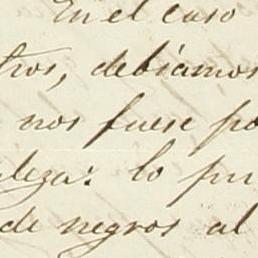 En el caso
tros, debíamos
nos fuese po
leza: lo pu
de negros al